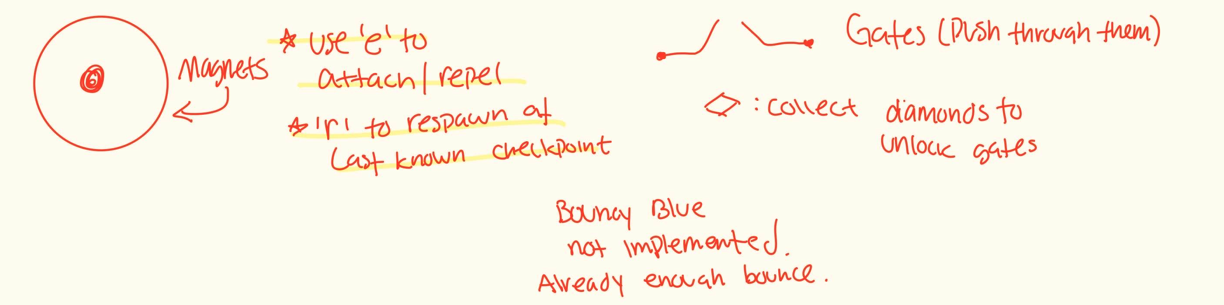 Magnets
☆ use 'e' to
attach/repel
☆ 'r' to respawn at
Last known checkpoint
Gates (Push through them)
: collect diamonds to
unlock gates
Bouncy Blue
not implemented.
Already enough bounce.